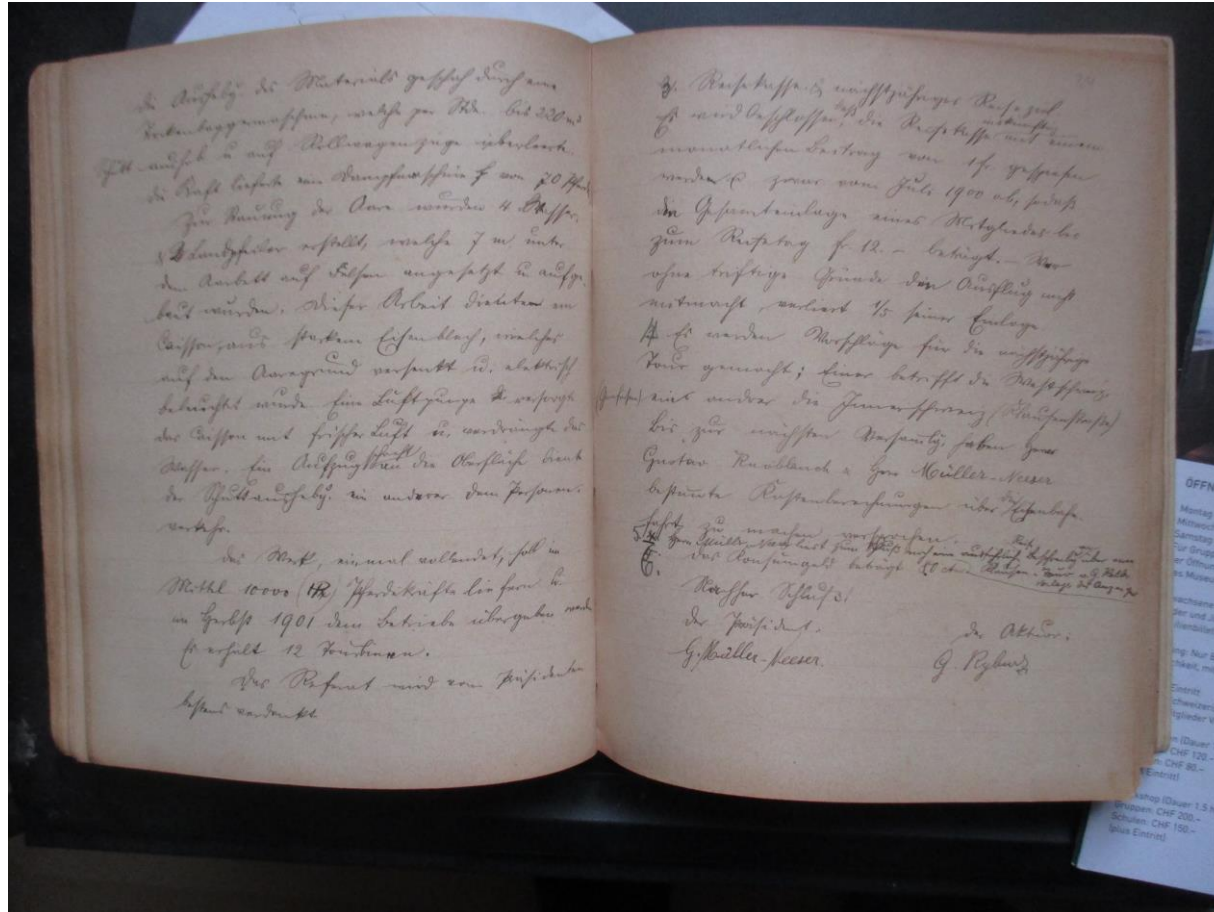 die Aushebg. des Materials geschah durch eine
Trockenbaggermaschine, welche per Stde. bis 220 m³
Schutt aushob u. auf Rollwagenzüge überleerte.
die Kraft lieferte eine Dampfmaschine von 70 Pferd.
Zur Stauung der Aare wurden 4 Wasser-
& Landpfeiler erstellt, welche 7 m unter
dem Aarbett auf Felsen angesetzt u. aufge-
baut wurden. Dieser Arbeit diente ein
Caisson, aus starkem Eisenblech, welches
auf den Aaregrund versenkt u. elektrisch
beleuchtet wurde. Eine Luftpumpe versorgte
das Caisson mit frischer Luft u. verdrängte das
Wasser. Ein Aufzugschacht an die Oberfläche diente
der Schuttaushebg. ein anderer dem Personen-
verkehr.
Das Werk, einmal vollendet, soll im
Mittel 10000 (HP) Pferdekräfte liefern u.
im Herbst 1901 dem Betriebe übergeben werden
Es erhält 12 Turbinen.
Das Referat wird vom Präsidenten
bestens verdankt
24
3. Reisekasse & nächstjähriges Reiseziel
Es wird beschlossen, daß die Reisekasse mit einem
monatlichen Beitrag von 1 fr. gespiesen
werde & zwar vom Juli 1900 ab, sodaß
die Gesamteinlage eines Mitgliedes bis
zum Reisetag fr. 12.– beträgt. – Wer
ohne triftige Gründe den Ausflug nicht
mitmacht, verliert 1/5 seiner Einlage
4. Es werden Vorschläge für die nächstjährige
Tour gemacht; Einer betrifft die Westschweiz,
ein anderer die Innerschweiz (Klausenstraße)
Bis zur nächsten Versamlg. haben Herr
Gustav Knoblauch & Herr Müller-Neeser
bestimmte Kostenberechnungen über die Eisenbahn
fahrt zu machen versprochen.
5. Herr Müller verliest zum Schluß noch eine
6. Das Konsumgeld beträgt 50 ctm.
Klausen-Tour v. G.
Nachher Schluß!
Der Präsident.
der Aktuar:
G. Müller-Neeser.
G. Ryburz
ÖFFN
Montag
Mittwoch
Samstag
Für Grupp
er Öffnun
Eintritt
(Dauer
CHF 120.–
CHF 80.–
Eintritt)
kshop (Dauer 1.5 h
Gruppen: CHF 200.–
Schulen: CHF 150.–
(plus Eintritt)